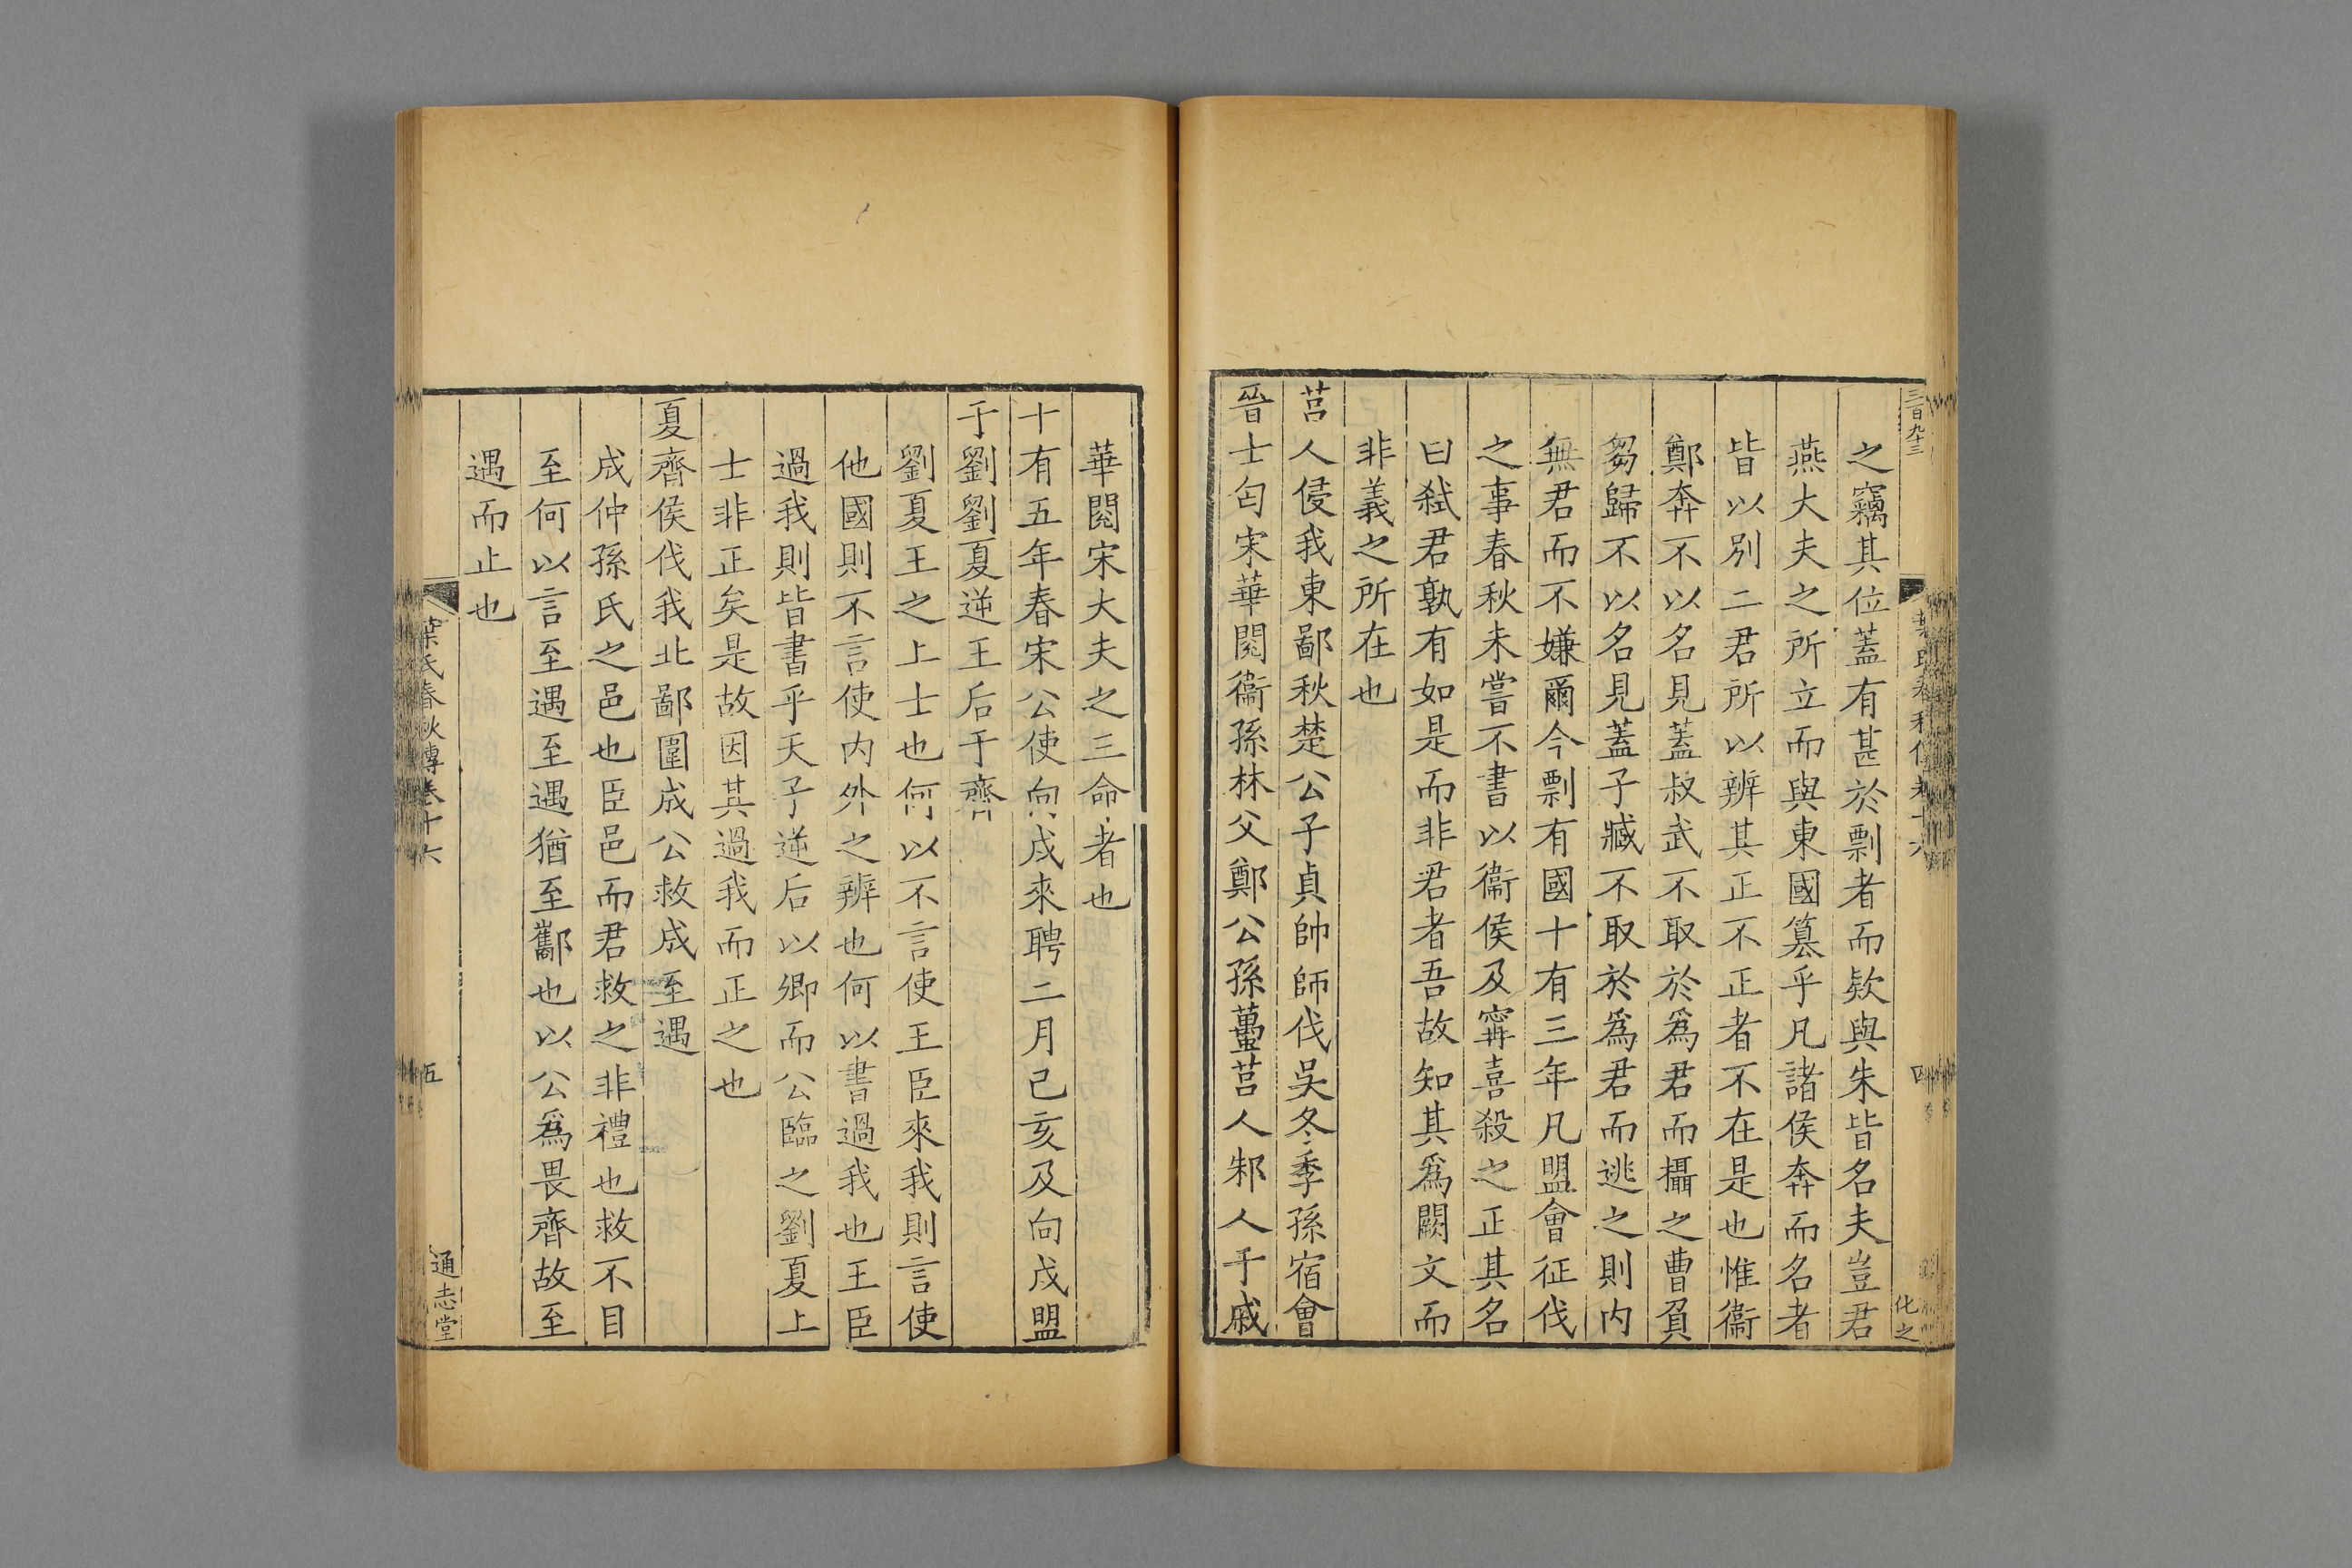 三百九十三
之竊其位蓋有甚於剽者而欵與朱皆名夫豈君
燕大夫之所立而與東國篡乎凡諸侯奔而名者
皆以別二君所以辨其正不正者不在是也惟衞
鄭奔不以名見蓋叔武不取於爲君而攝之曹負
芻歸不以名見蓋子臧不取於爲君而逃之則内
無君而不嫌爾今剽有國十有三年凡盟會征伐
之事春秋未嘗不書以衞侯及甯喜殺之正其名
曰弑君孰有如是而非君者吾故知其爲闕文而
非義之所在也
莒人侵我東鄙秋楚公子貞帥師伐吳冬季孫宿會
晉士匄宋華閱衞孫林父鄭公孫蠆莒人邾人于戚
四
化之
華閱宋大夫之三命者也
十有五年春宋公使向戌來聘二月己亥及向戌盟
于劉劉夏逆王后于齊
劉夏王之上士也何以不言使王臣來我則言使
他國則不言使内外之辨也何以書過我也王臣
過我則皆書乎天子逆后以卿而公臨之劉夏上
士非正矣是故因其過我而正之也
夏齊侯伐我北鄙圍成公救成至遇
成仲孫氏之邑也臣邑而君救之非禮也救不目
至何以言至遇至遇猶至酅也以公爲畏齊故至
遇而止也
葉氏春秋傳卷十六
五
通志堂